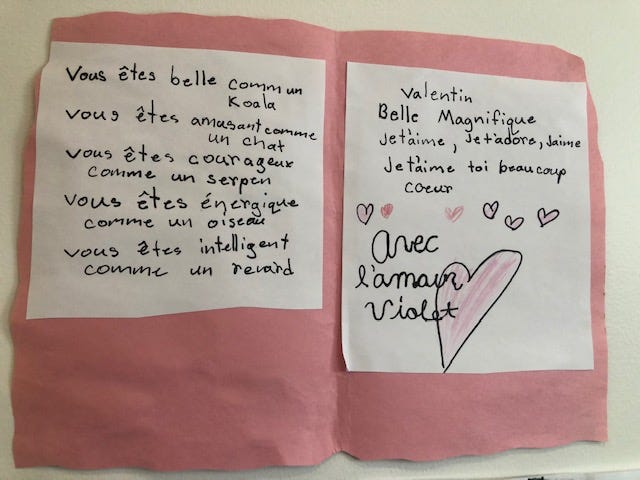 Vous êtes belle comm un
Koala
vous êtes amusant comme
un chat
vous êtes courageux
comme un serpen
vous êtes énergique
comme un oiseau
vous êtes intelligent
comme un renard
Valentin
Belle Magnifique
Je t'aime, Je t'adore, Jaime
Je t'aime toi beaucoup
coeur
Avec
l'amour
Violet